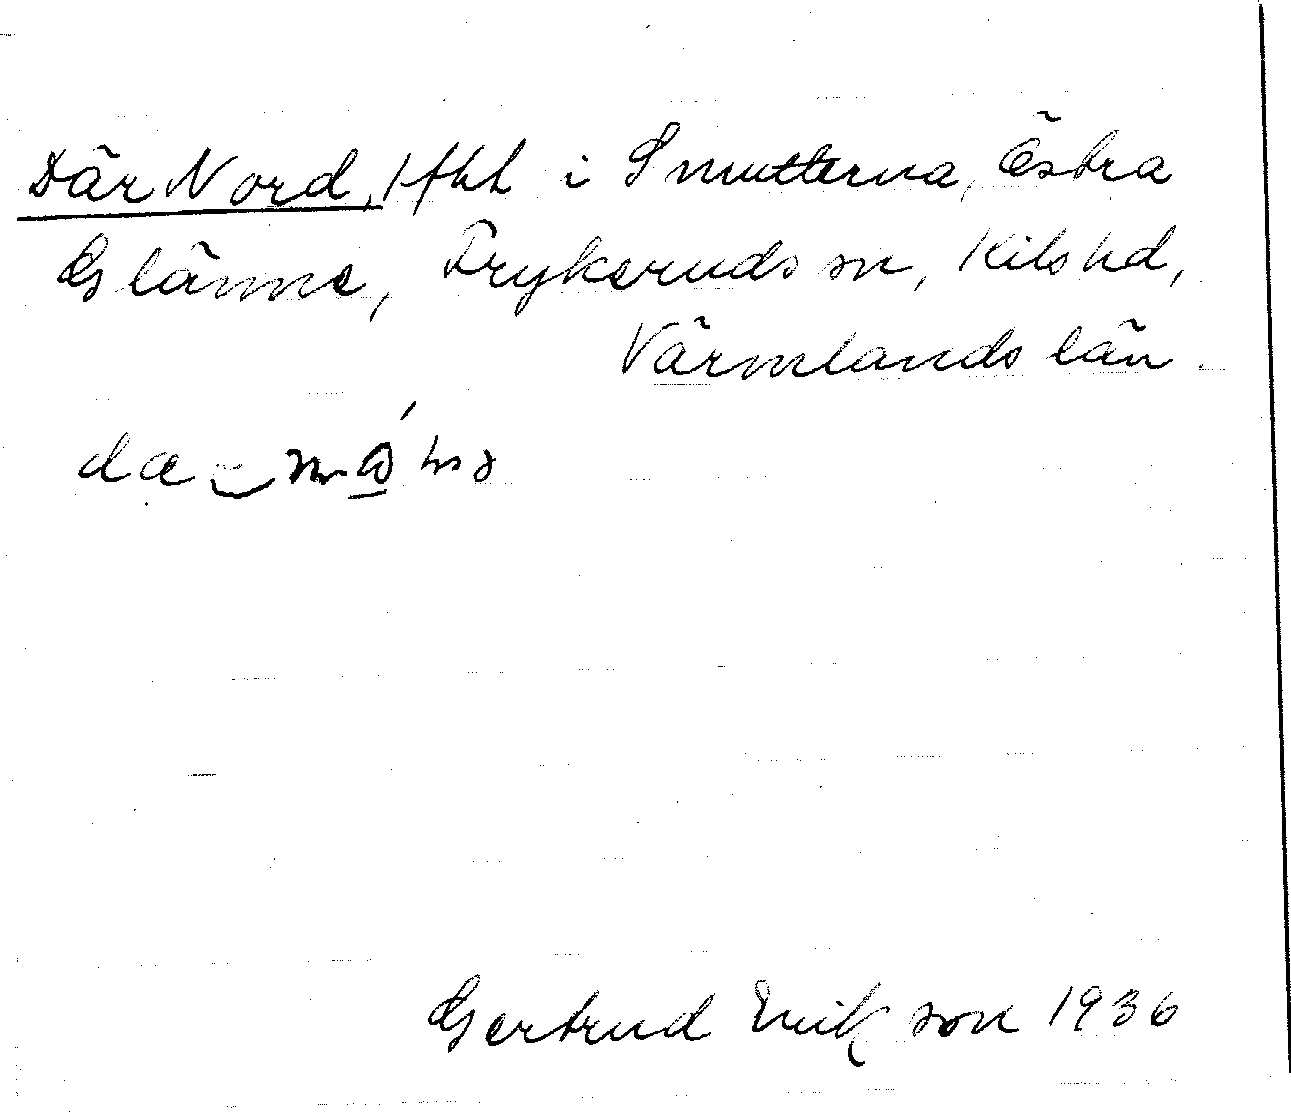 Där Nord, lht i Smutterna, Östra
Glänne, Frykerud sn, Kils hd,
Värmlands län.
Gertrud Erikson 1936